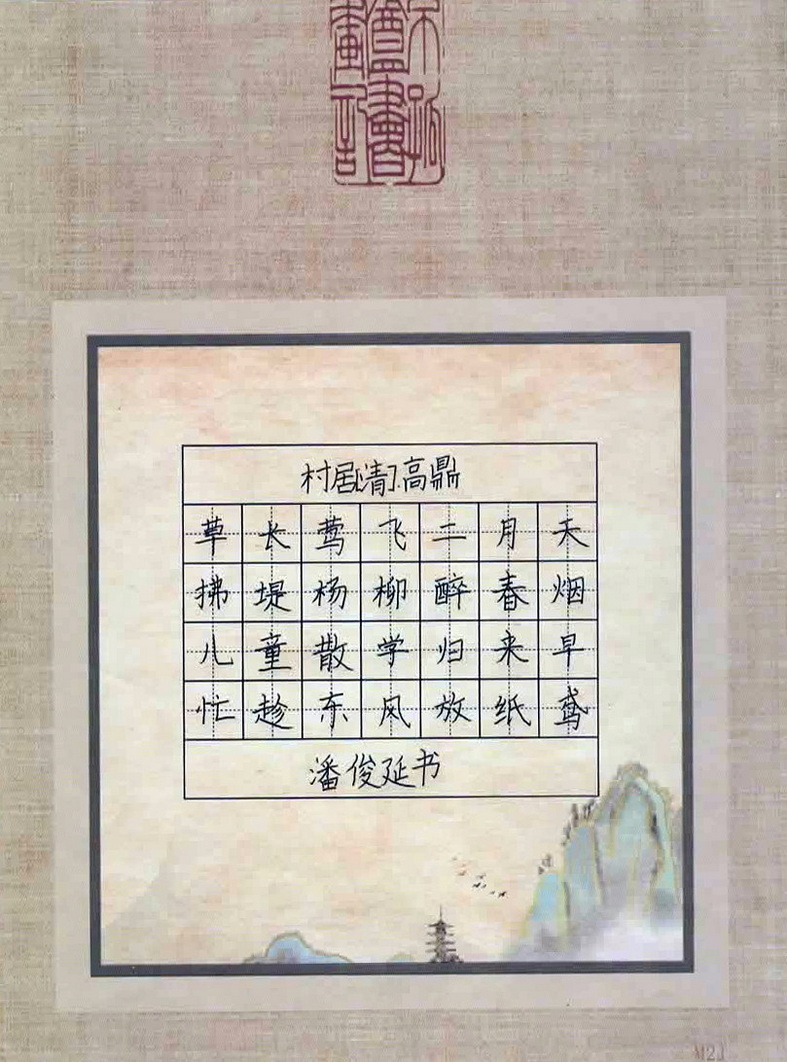 村居[清]高鼎
草长莺飞二月天
拂堤杨柳醉春烟
儿童散学归来早
忙趁东风放纸鸢
潘俊延书